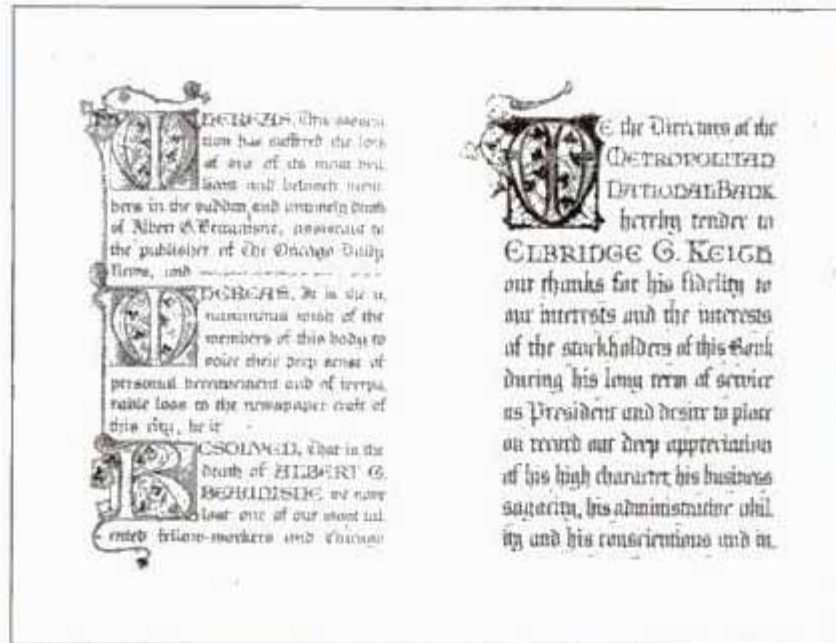 WHEREAS, This associa
tion has suffered the loss
of one of its most bril
liant and beloved mem
bers in the sudden and untimely death
of Albert G. Beaunisne, assistant to
the publisher of The Chicago Daily
News, and
WHEREAS, It is the u
nanimous wish of the
members of this body to
voice their deep sense of
personal bereavement and of irrepa
rable loss to the newspaper craft of
this city, be it
RESOLVED, That in the
death of ALBERT G.
BEAUNISNE we have
lost one of our most tal
ented fellow-workers and Chicago
WE the Directors of the
METROPOLITAN
NATIONAL BANK
hereby tender to
ELBRIDGE G. KEITH
our thanks for his fidelity to
our interests and the interests
of the stockholders of this Bank
during his long term of service
as President and desire to place
on record our deep appreciation
of his high character, his business
sagacity, his administrative abil
ity and his conscientious and in